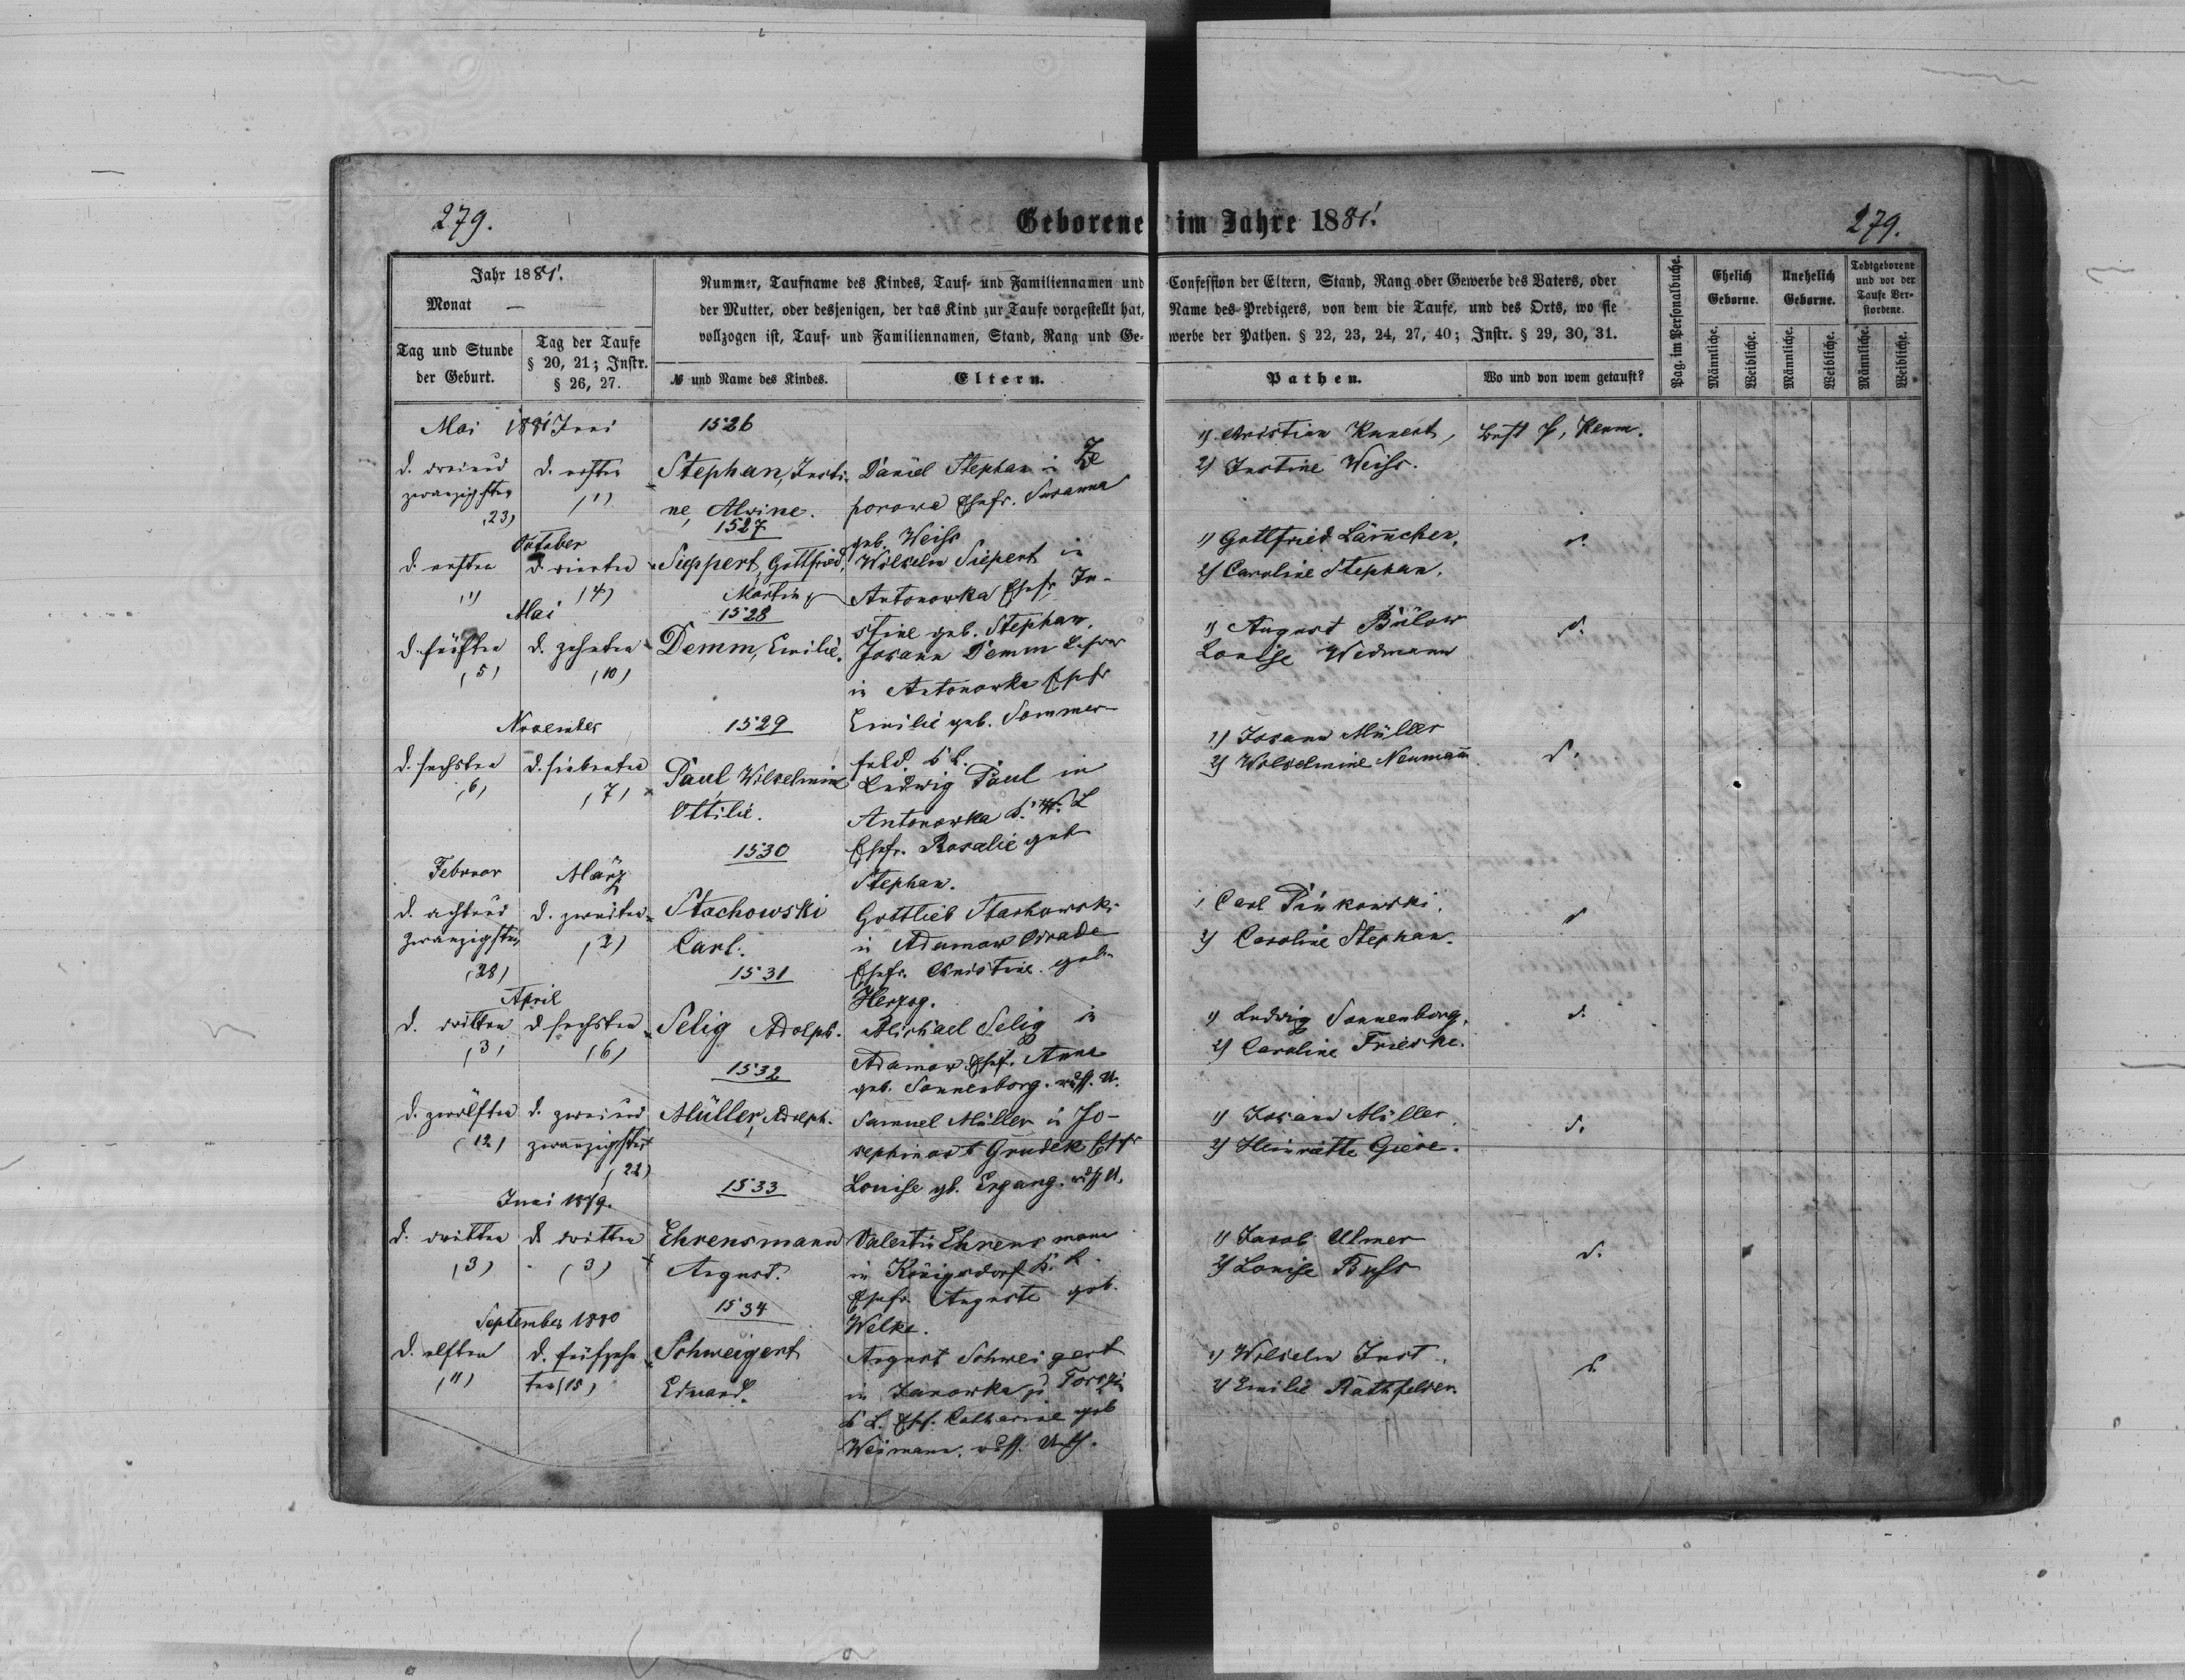 279.
Geborene im Jahre 1881.
279.
Jahr 1881.
Monat —
Tag und Stunde
der Geburt.
Tag der Taufe
§ 20, 21; Instr.
§ 26, 27.
Nummer, Taufname des Kindes, Tauf- und Familiennamen und Confession der Eltern, Stand, Rang oder Gewerbe des Vaters, oder
der Mutter, oder desjenigen, der das Kind zur Taufe vorgestellt hat, Name des Predigers, von dem die Taufe, und des Orts, wo sie
vollzogen ist, Tauf- und Familiennamen, Stand, Rang und Gewerbe der Pathen. § 22, 23, 24, 27, 40; Instr. § 29, 30, 31.
№ und Name des Kindes.
Eltern.
Pathen.
Wo und von wem getauft?
Pag. im Personalbuche.
Ehelich
Geborne.
Unehelich
Geborne.
Todtgeborene
und vor der
Taufe Ver-
storbene.
Männliche.
Weibliche.
Männliche.
Weibliche.
Männliche.
Weibliche.
Mai 1881 Juni
d. dreiund
zwanzigsten
(23)
d. ersten
(1)
1526
Stephan, Justi-
ne, Alwine.
Daniel Stephan in Ze
porowa Ehefr. Susanna
geb. Weiss
1) Christian Kunert,
2) Justine Weiss.
October
d. ersten
(1)
d. vierten
(4)
1527
Sieppert, Gottfried,
Martin
Wilhelm Siepert in
Antonowka Ehefr. Ju-
stine geb. Stephan.
1) Gottfried Lämcher,
2) Caroline Stephan.
d.
Mai
d. fünften
(5)
d. zehnten
(10)
1528
Demm, Emilie.
Johann Demm
in Antonowka Ehefr
Emilie geb. Sommer-
feld.
1) August Bülow
Louise Widmann
d.
November
d. sechsten
(6)
d. siebenten
(7)
1529
Paul, Wilhelmine
Ottilie.
Ludwig Paul in
Antonowka
Ehefr. Rosalie geb
Stephan.
1) Johann Müller
2) Wilhelmine Neumann
d.
Februar
März
d. achtund
zwanzigsten
(28)
d. zweiten
(2)
1530
Stachowski
Carl.
Gottlieb Stachowski
in Adamow
Ehefr. Christine geb.
Herzog.
1) Carl Pinkowski.
2) Caroline Stephan.
d
April
d. dritten
(3)
d. sechsten
(6)
1531
Selig Adolph.
Michael Selig in
Adamow Ehef. Anna
geb. Sonnenborg. russ. U.
1) Ludwig Sonnenborg.
2) Caroline Frieske.
d.
d. zwölften
(12)
d. zweiund
zwanzigsten
(22)
1532
Müller, Adolph.
Samuel Müller in Jo-
sephinast Grudek Ehfr
Louise gb. Ergang. russ U.
1) Johann Müller.
2) Heinriette Giese.
d.
Juni 1879.
d. dritten
(3)
d. dritten
(3)
1533
Ehrensmann
August.
Valentin Ehrensmann
in Königsdorf
Ehefr. Auguste geb.
Welke.
1) Jacob Ulmer
2) Louise Buss
d.
September 1880
d. elften
(11)
d. fünfzehn
ten (15)
1534
Schweigert
Eduard.
August Schweigert
in Janowka
Ehf. Catharine geb
Weimann. russ. Unth.
1) Wilhelm Just.
2) Emilie Rathfelder.
d.